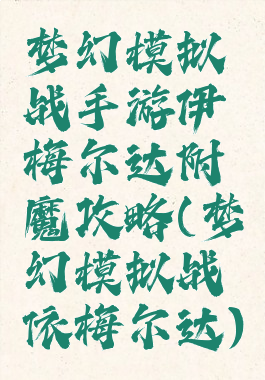 梦幻模拟
战手游伊
梅尔达附
魔攻略(梦
幻模拟战
依梅尔达)